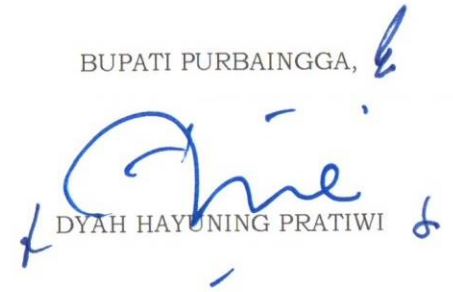 BUPATI PURBAINGGA,
DYAH HAYUNING PRATIWI